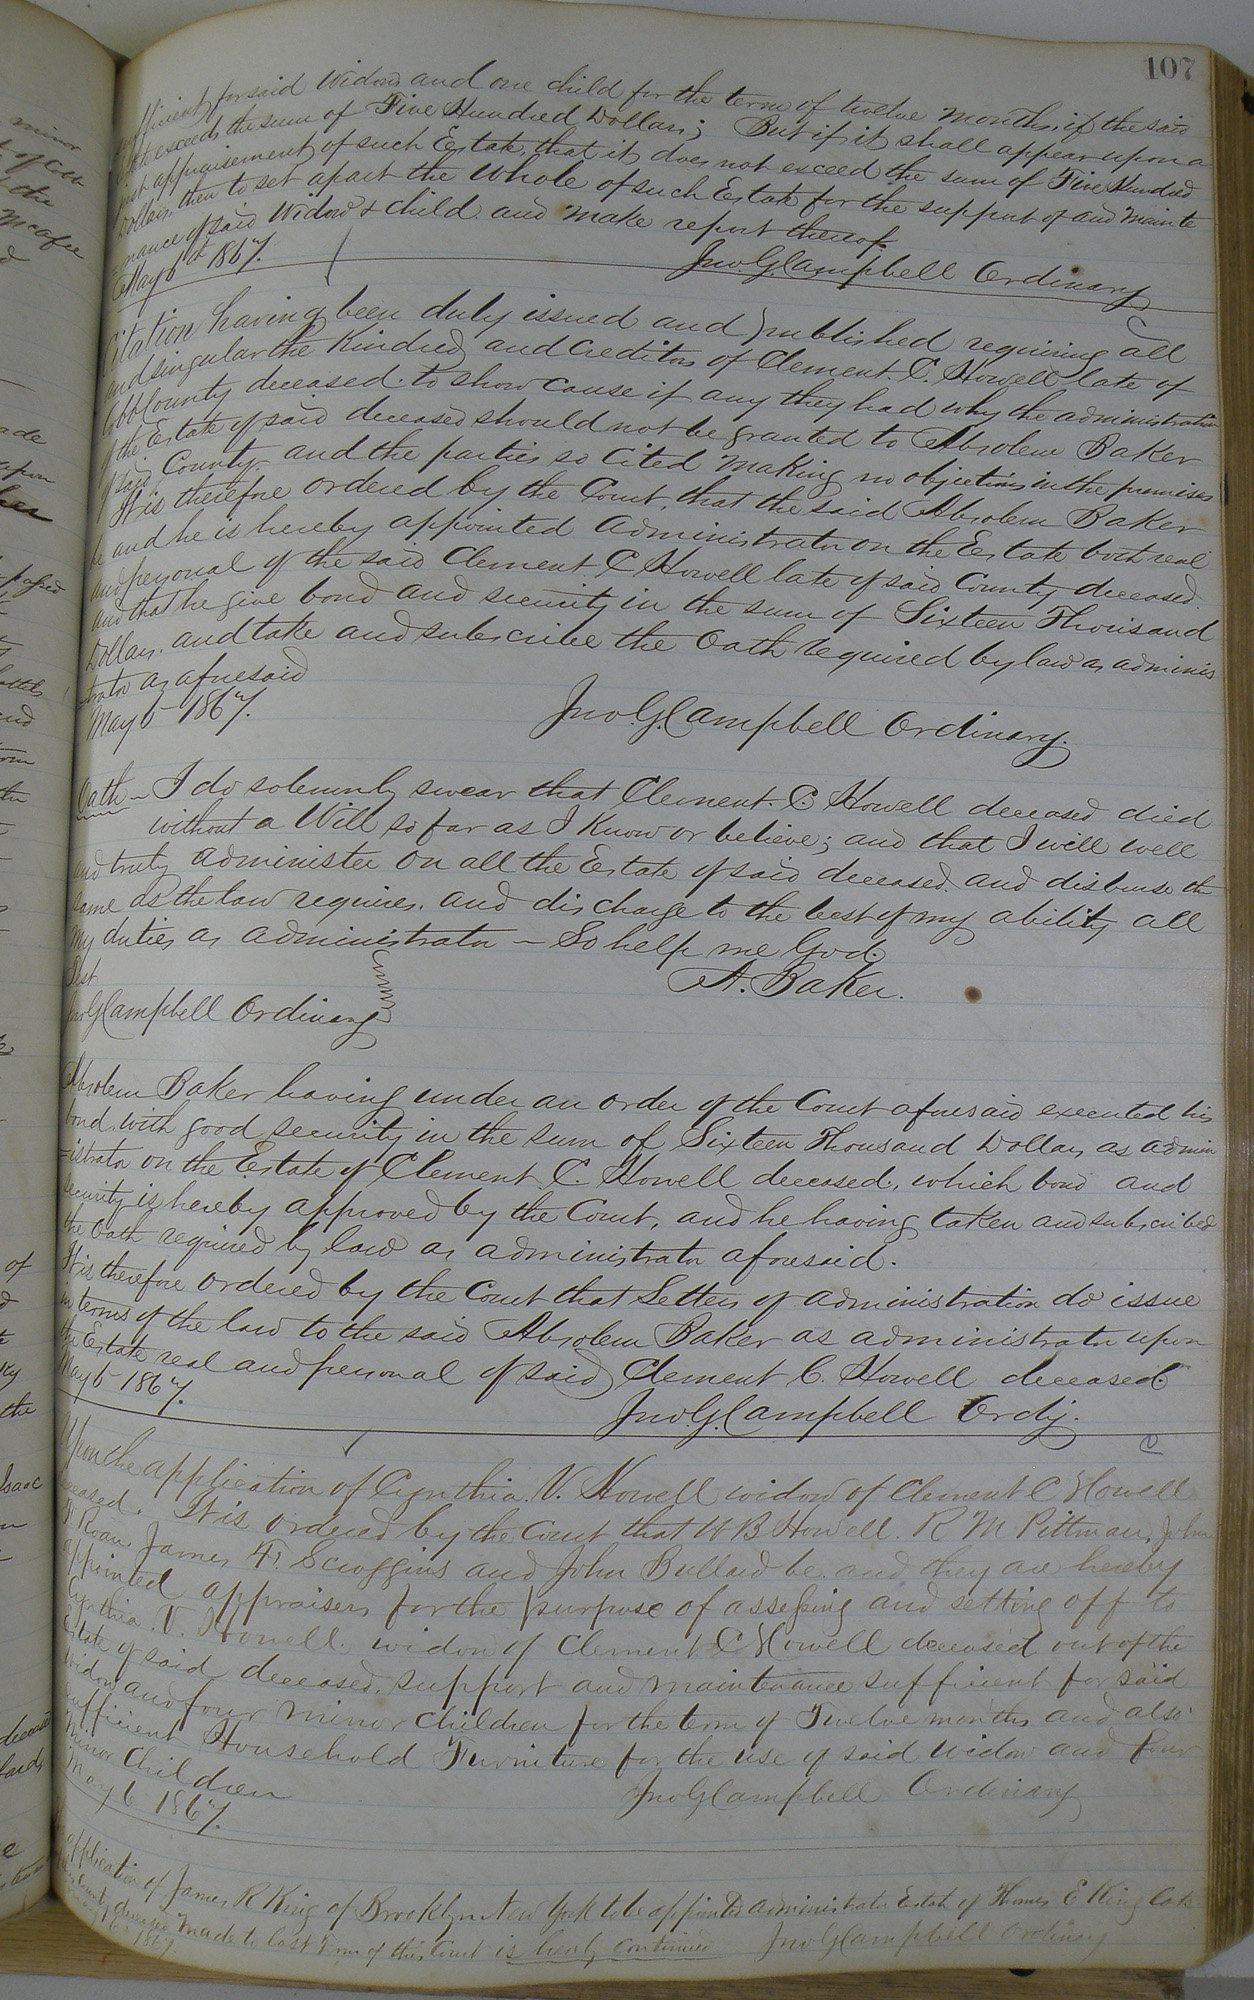 107
sufficient for said Widow and one child for the term of twelve months, if the said
Estate exceeds the sum of Five Hundred Dollars; But if it shall appear upon a
just appraisement of such Estate, that it does not exceed the sum of Five Hundred
Dollars, then to set apart the Whole of such Estate for the support of and Mainte
nance of said Widow & child and make report thereof.
May 6th 1867. Jno. G. Campbell Ordinary
Citation having been duly issued and published requiring all
and singular the Kindred and Creditors of Clement. C. Howell late of
Cobb County deceased. to show cause if any they had why the administration
of the Estate of said deceased should not be granted to Absolem Baker
of said County. and the parties so Cited making no objections in the premises
It is therefore ordered by the Court, that the said Absolem Baker
be and he is hereby appointed Administrator on the Estate both real
and personal of the said Clement C Howell late of said County deceased.
and that he give bond and security in the sum of Sixteen Thousand
Dollars. and take and subscribe the Oath required by law as adminis
-trator as aforesaid
May 6 1867. Jno. G. Campbell Ordinary.
Oath - I do solemnly swear that Clement. C. Howell deceased died
without a Will so far as I know or believe; and that I will well
and truly administer on all the Estate of said deceased. and disburse the
same as the law requires. and discharge to the best of my ability all
my duties as administrator - So help me God.
Test A. Baker.
Jno G Campbell Ordinary
Absolem Baker having under an order of the Court aforesaid executed his
bond, with good security in the sum of Sixteen Thousand Dollars as admin
-istrator on the Estate of Clement. C. Howell deceased., which bond and
security is hereby approved by the Court, and he having taken and subscribed
the Oath required by law as administrator aforesaid.
It is therefore ordered by the Court that Letters of administration do issue
in terms of the law to the said Absolem Baker as administrator upon
the Estate real and personal of said Clement C. Howell deceased.
May 6 1867. Jno. G. Campbell Ordy.
Upon the application of Cynthia. V. Howell widow of Clement C Howell
deceased. It is ordered by the Court that W B Howell. R M Pittman, John
Roan James F. Scroggins and John Bullard be and they are hereby
appointed appraisers for the purpose of assessing and setting off to
Cynthia. V. Howell. widow of Clement C Howell deceased out of the
Estate of said deceased, support and maintenance sufficient for said
widow and four minor children for the term of Twelve months and also
sufficient Household Furniture for the use of said widow and four
Minor Children
May 6 1867. Jno G Campbell Ordinary
application of James R King of Brooklyn New York to be appointed administrator Estate of Thomas E King late
County deceased made to last Term of this Court is hereby continued Jno G Campbell Ordinary
1867